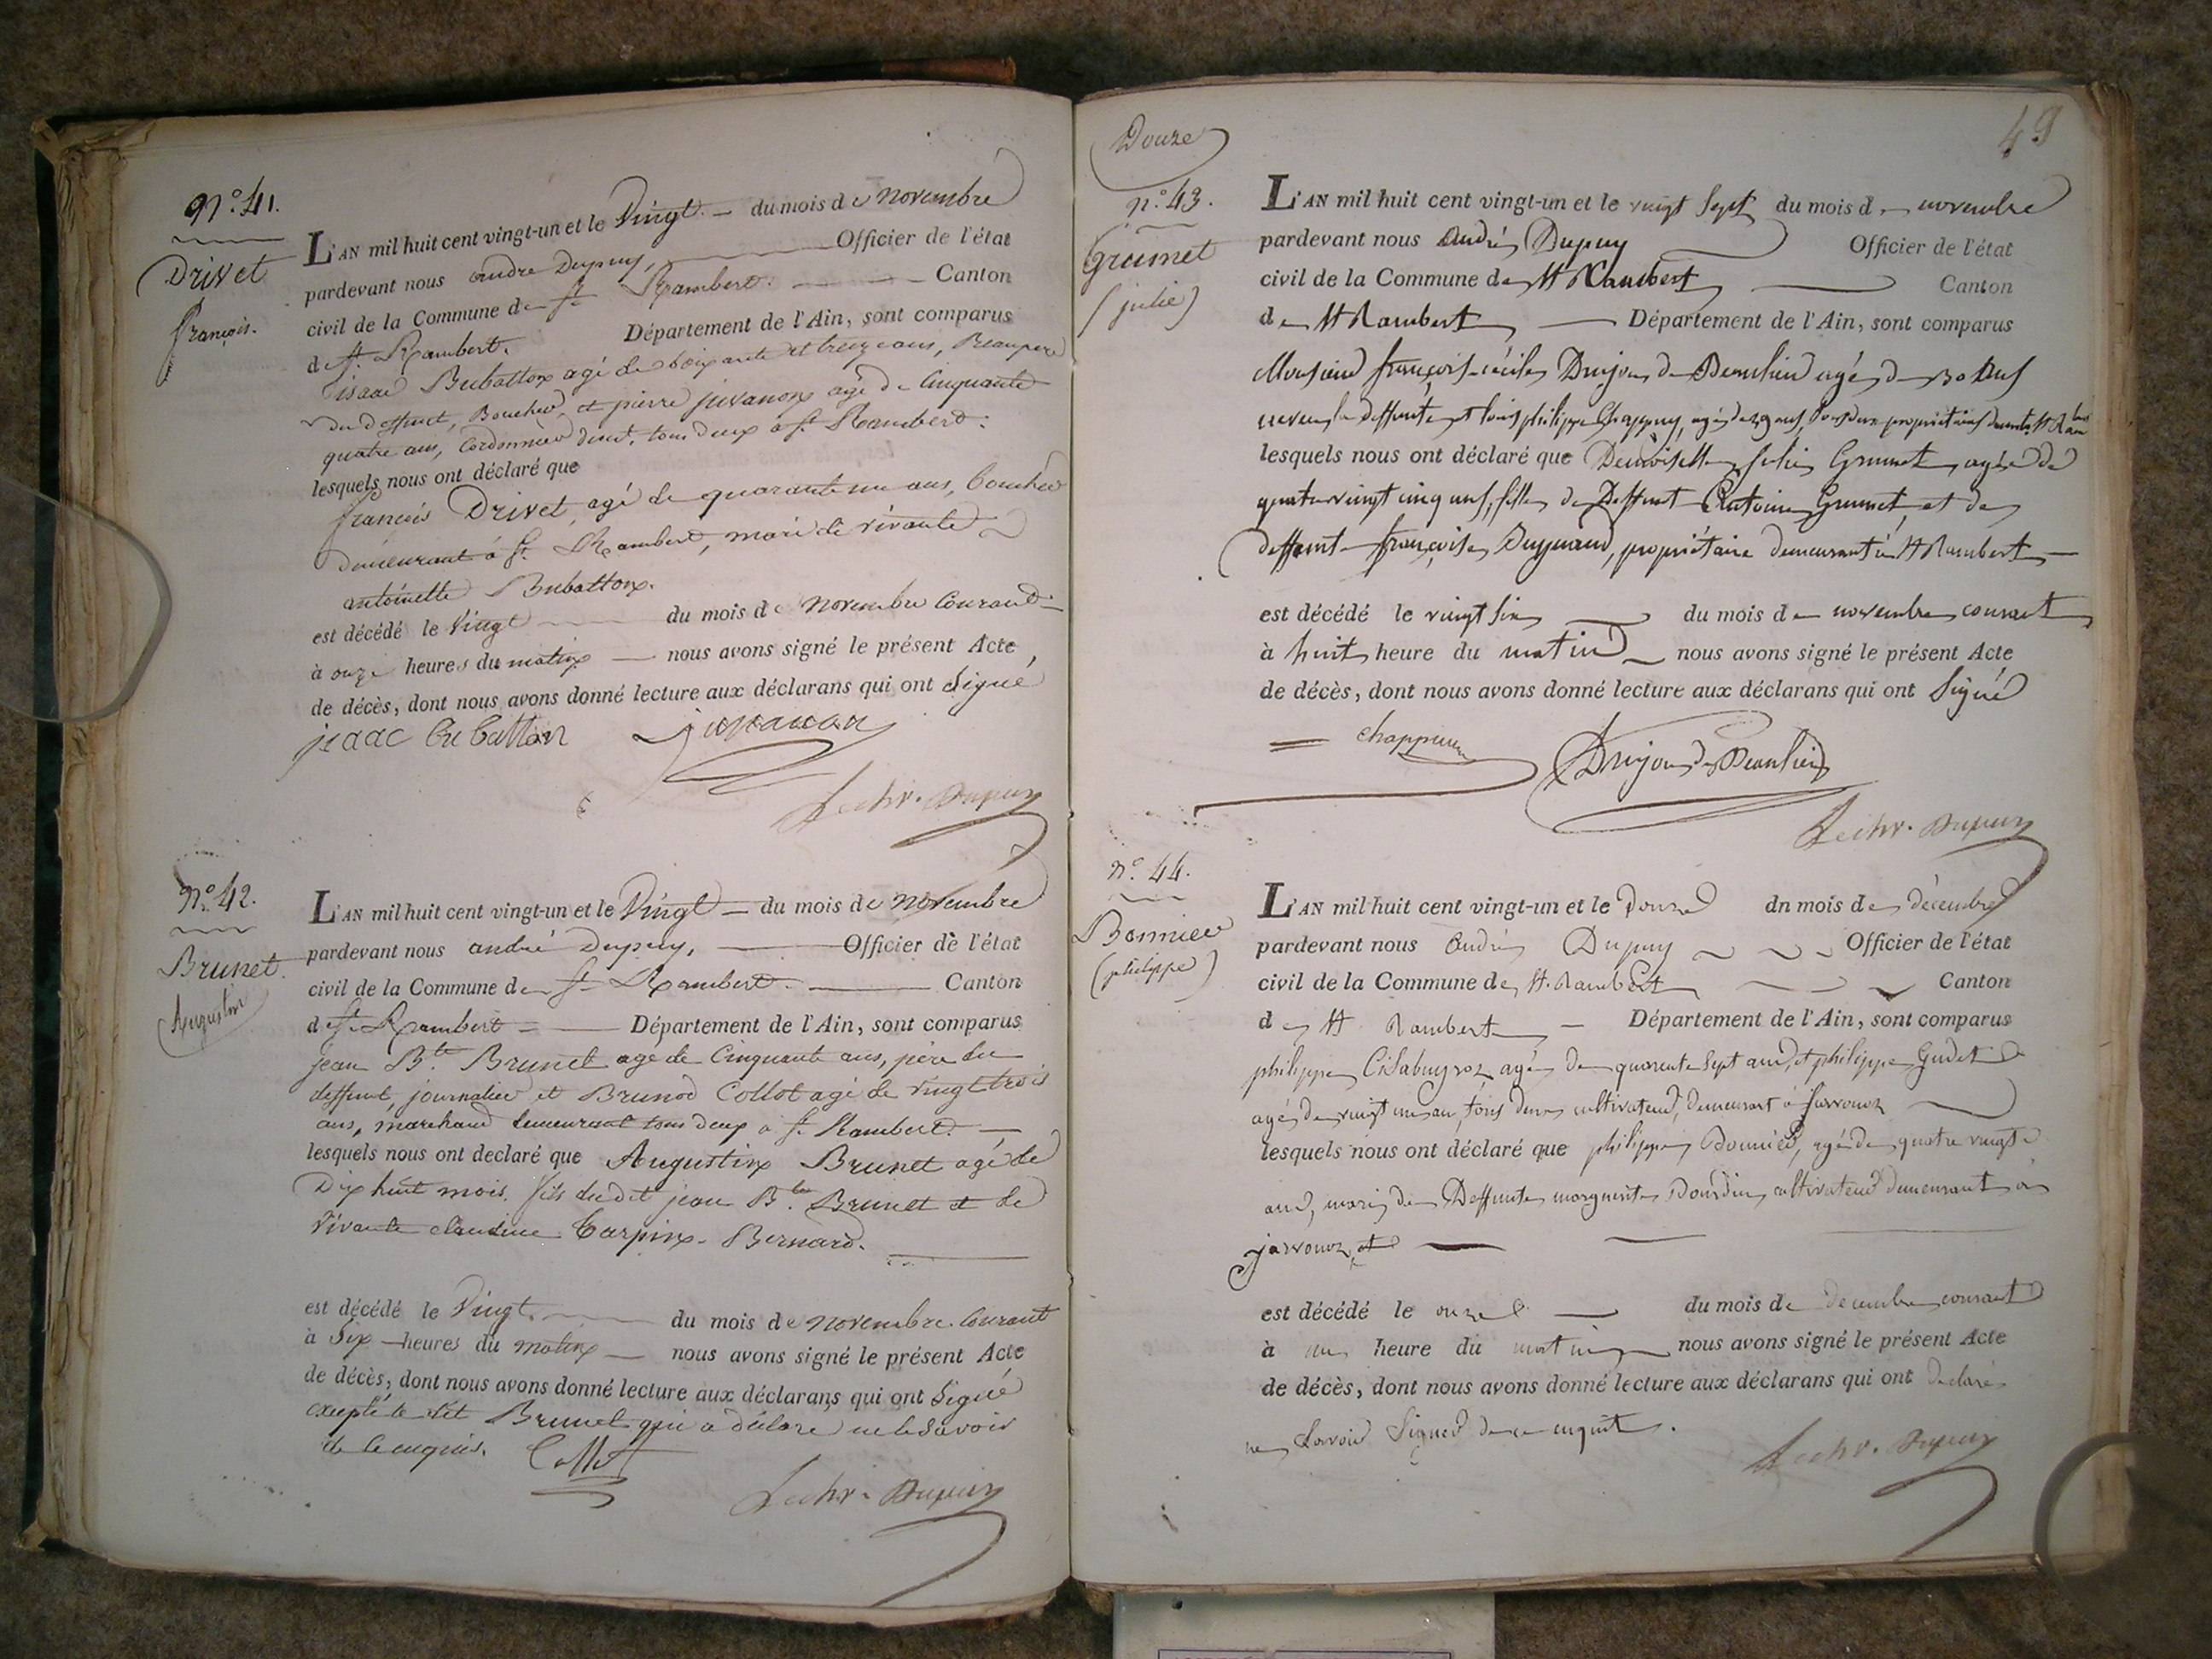 N.° 41.
Drivet
françois.
L'AN mil huit cent vingt-un et le Vingt — du mois de novembre
pardevant nous andré Dupuy, Officier de l'état
civil de la Commune de St Rambert. Canton
de St Rambert. Département de l'Ain, sont comparus
isaac Bubatton agé de soixante et treize ans, Beaupere
du deffunt, Boucher, et pierre juvanon agé de Cinquante
quatre ans, Cordonnier demt. tous deux à St. Rambert:
lesquels nous ont déclaré que
françois Drivet, agé de quarante un ans, boucher
demeurant à St. Rambert, mari de vivante
antoinette Bubatton.
est décédé le Vingt du mois de novembre Courant
à onze heures du matin — nous avons signé le présent Acte
de décès, dont nous avons donné lecture aux déclarans qui ont Signé
isaac bubatton juvanon
Dupuy
N.° 42.
Brunet
Augustin
L'AN mil huit cent vingt-un et le Vingt — du mois de novembre
pardevant nous andré Dupuy, Officier de l'état
civil de la Commune de St Rambert. Canton
de St. Rambert — Département de l'Ain, sont comparus
jean Bte. Brunet agé de Cinquante ans, père du
deffunt, journalier et Brunod Collot agé de vingt trois
ans, marchand demeurant tous deux à St. Rambert. —
lesquels nous ont declaré que Augustin Brunet agé de
Dix huit mois, fils dudit jean Bte. Brunet et de
Vivante claudine Carpin-Bernard.
est décédé le Vingt du mois de novembre Courant
à Six heures du matin — nous avons signé le présent Acte
de décès, dont nous avons donné lecture aux déclarans qui ont Signé
excepté le dit Brunet qui a déclaré ne le Savoir
de ce enquis. Collot
Dupuy
49
Douze
n.° 43.
Grumet
(julie)
L'AN mil huit cent vingt-un et le vingt Sept du mois de novembre
pardevant nous André Dupuy Officier de l'état
civil de la Commune de St Rambert Canton
de St Rambert — Département de l'Ain, sont comparus
Monsieur françois-cécile Dujon de Beaulieu agé de 30 ans
neveu la deffunte et louis philippe Chappuy, agé de 29 ans, tous deux propriétaires demts. St Ram
lesquels nous ont déclaré que Demoiselle Julie Grumet, agée de
quatre vingt cinq ans, fille de Deffunt Antoine Grumet, et de
deffunt françoise Dugnand, propriétaire demeurant à St Rambert —
est décédé le vingt six du mois de novembre courant
à huit heure du matin nous avons signé le présent Acte
de décès, dont nous avons donné lecture aux déclarans qui ont Signé
chappuy Dujon de Beaulieu
Dupuy
n.° 44.
Bonnier
(philippe)
L'AN mil huit cent vingt-un et le Douze dn mois de décembre
pardevant nous André Dupuy Officier de l'état
civil de la Commune de St. Rambert Canton
de St Rambert — Département de l'Ain, sont comparus
philippe agé de quarente Sept ans, et philippe Gudet
agé de vingt un an, tous deux cultivateurs, demeurant à
lesquels nous ont déclaré que philippe Bonnier, agé de quatre vingt
ans, mari de Deffunte marguerite Bourdin, cultivateur demeurant à
est décédé le onze — du mois de decembre courant
à une heure du matin nous avons signé le présent Acte
de décès, dont nous avons donné lecture aux déclarans qui ont declaré
ne Savoir Signer de ce enquit.
Dupuy